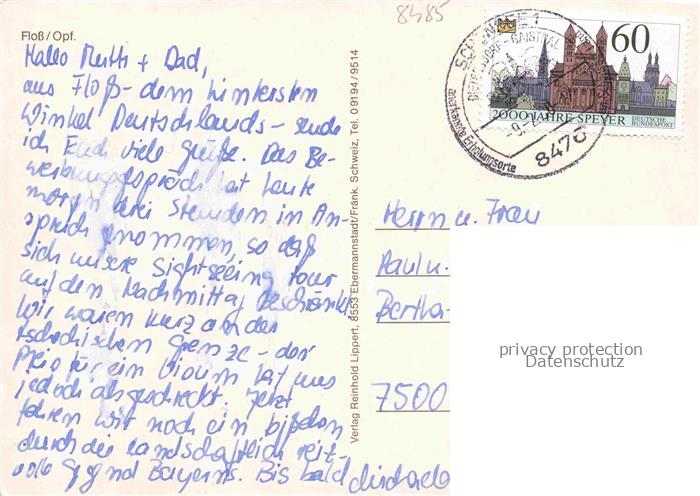 8485
Floß/Opf.
Hallo Mutti + Dad,
aus Floß - dem hintersten
Winkel Deutschlands - sende
ich Euch viele Grüße. Das Be-
werbungsgespräch hat heute
morgen drei Stunden in An-
spruch genommen, so daß
sich unsere Sightseeing tour
auf den Nachmittag beschränkt.
Wir waren kurz an der
tschechischen Grenze - der
Preis für ein Visum hat uns
jedoch abgeschreckt. Jetzt
fahren wir noch ein bißchen
durch die landschaftlich reiz-
volle Gegend Bayerns. Bis bald
Michael
Verlag Reinhold Lippert, 8553 Ebermannstadt/Fränk. Schweiz, Tel. 09194/9514
60
2000 JAHRE SPEYER
DEUTSCHE
BUNDESPOST
anerkannte Erholungsorte
8470
Herrn u. Frau
Paul u.
Bertha
7500
privacy protection
Datenschutz